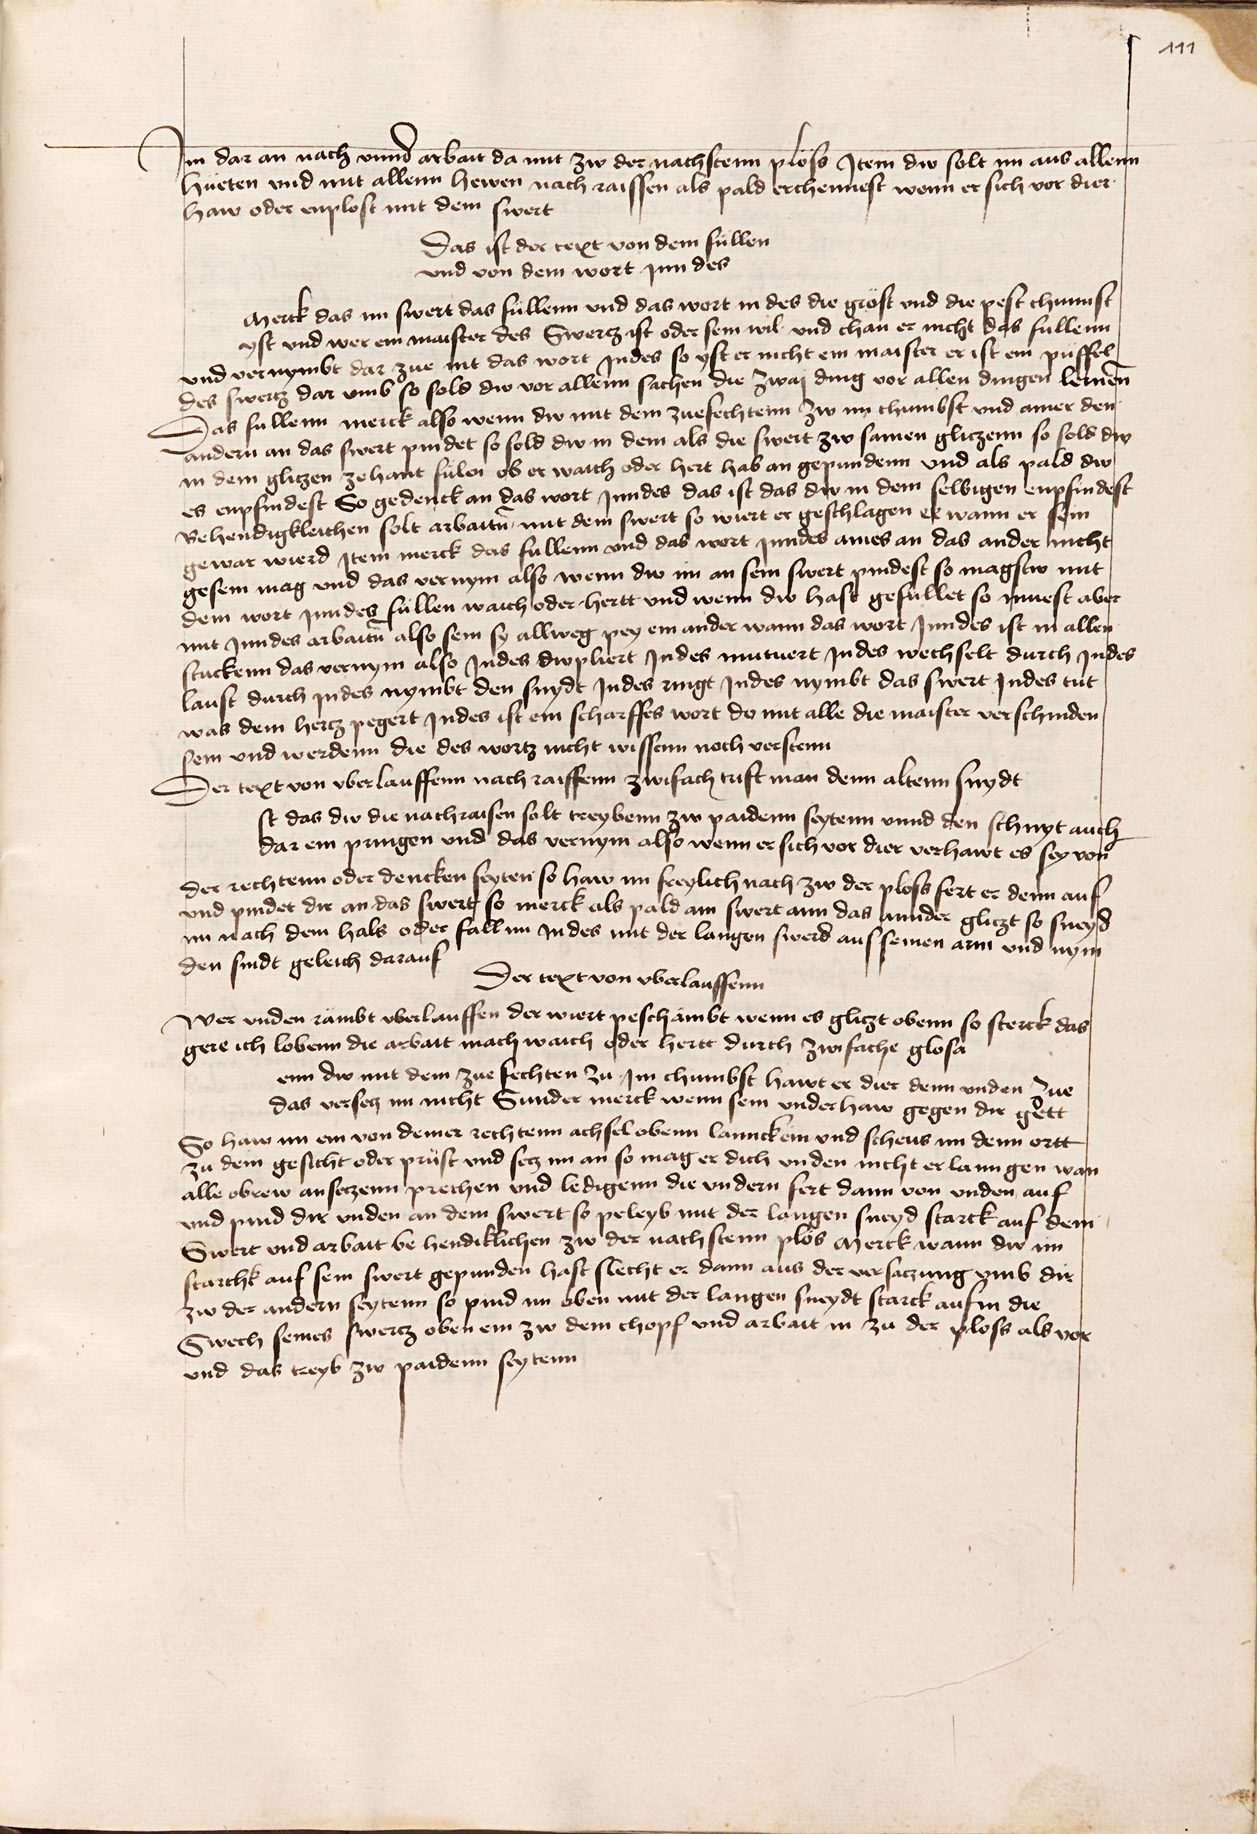 111
Im dar an nach unnd arbait da mit zw der nachstenn plöss Item dw solt im aus allenn
hüeten vnd mit allenn hewen nach raissen als pald erchennest wenn er sich vor dier
haw oder enplost mit dem swert
Das ist der text von dem füllen
vnd von dem wort Inn des
Merck das im swert das füllenn vnd das wort in des die gröst vnd die pest chunnst
yst vnd wer ein maister des Swertz ist oder sein wil vnd chan er nicht das füllenn
vnd vernymbt dar zue nit das wort Indes so yst er nicht ein maister er ist ein püffel
des swertz dar vmb so sold dw vor allenn sachen die zwai ding vor allen dingen lernen
Das füllenn merck also wenn dw mit dem zuefechtenn zw im chumbst vnd ainer den
andern an das swert pindet so sold dw in dem als die swert zw samen gliczenn so sold dw
in dem glitzen zehant fülen ob er waich oder hert hab an gepundenn vnd als pald dw
es enpfindest So gedenck an das wort Inndes das ist das dw in dem selbigen enpfindest
Behendigkleichen solt arbaitn mit dem swert so wiert er geschlagen ee wann er sein
gewar wierd Item merck das füllenn vnd das wort Inndes aines an das ander nicht
gesein mag vnd das vernym also wenn dw im an sein swert pindest so magstw mit
dem wort Inndes füllen waich oder hertt vnd wenn dw hast gefüllet so muest aber
mit Inndes arbaitn also sein sy allweg pey ein ander wann das wort Inndes ist in allen
stuckenn das vernym also Indes dwpliert Indes mutiert Indes wechselt durch Indes
laust durch Indes nymbt den snydt Indes ringt Indes nymbt das swert Indes tut
was dem hertz pegert Indes ist ein scharffes wort do mit alle die maister verschniden
sein vnd werdenn die des wortz nicht wissenn noch verstenn
Der text von vberlauffenn nach raiffenn zwifach trift man denn altenn snydt
st das dw die nachraisen solt treybenn zw paidenn seytenn vnnd den schnyt auch
dar ein pringen vnd das vernym also wenn er sich vor dier verhawt es sey von
der rechtenn oder dencken seyten so haw im freylich nach zw der ploss fert er denn auf
vnd pindet dir an das swert so merck als pald ain swert ann das annder gliczt so sneyd
im nach dem hals oder fall im Indes mit der langen swerd auf seinen arm vnd nym
den snidt geleich darauf
Der text von vberlauffenn
Wer vnden rambt vberlauffen der wiert peschambt wenn es gliczt obenn so sterck das
gere ich lobenn die arbait mach waich oder hertt durch zwifache glosa
enn dw mit dem zue fechten zu im chumbst hawt er dier denn vnden zue
das versecz im nicht Sunder merck wenn sein vnderhaw gegen dir gett
So haw im ein von deiner rechtenn achsel obenn lannck ein vnd scheus im denn ortt
zu dem gesicht oder prüst vnd secz im an so mag er dich vnden nicht erlanngen wan
alle obrew ansetzenn prechen vnd ledigenn die vndern fert dann von vnden auf
vnd pind dir vnden an dem swert so peleyb mit der langen sneyd starck auf dem
Swert vnd arbait be hendiklichen zw der nachstenn plös Merck wann dw im
starchk auf sein swert gepunden hast slecht er dann aus der versaczung vmb dir
zw der andern seytenn so pind im oben mit der langen sneydt starck auf in die
Swech seines swertz oben ein zw dem chopf vnd arbait in zu der ploss als vor
vnd das treyb zw paidenn seytenn